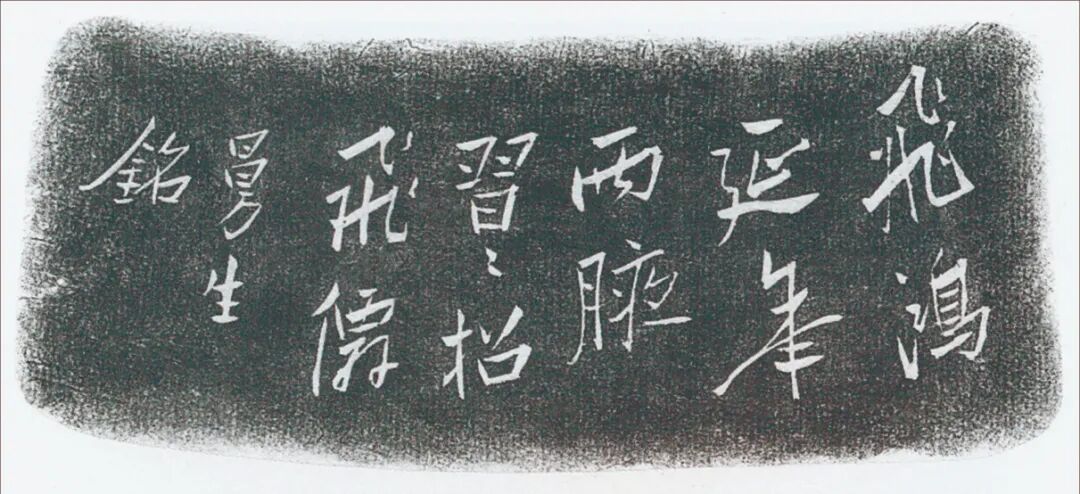 飛鴻
延年
兩腋
習〻招
飛僊
曼生
銘